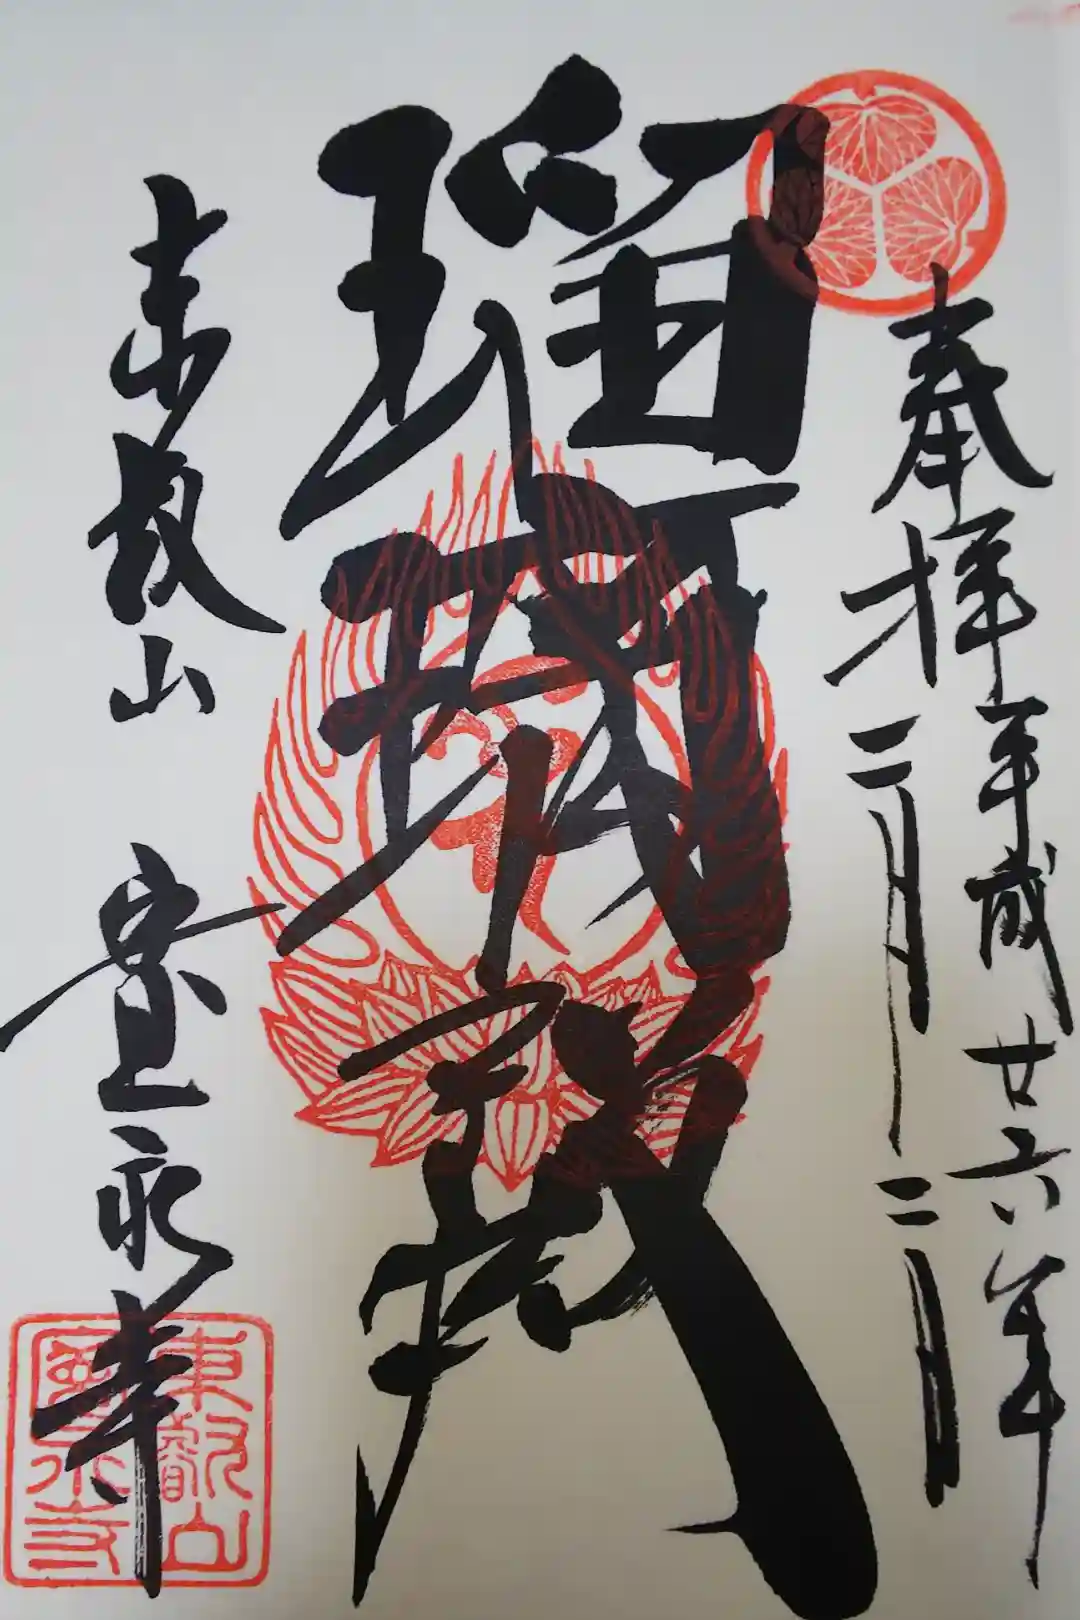 奉拝 平成廿六年
十二月二日
瑠璃殿
東叡山 寛永寺
東叡山
寛永寺